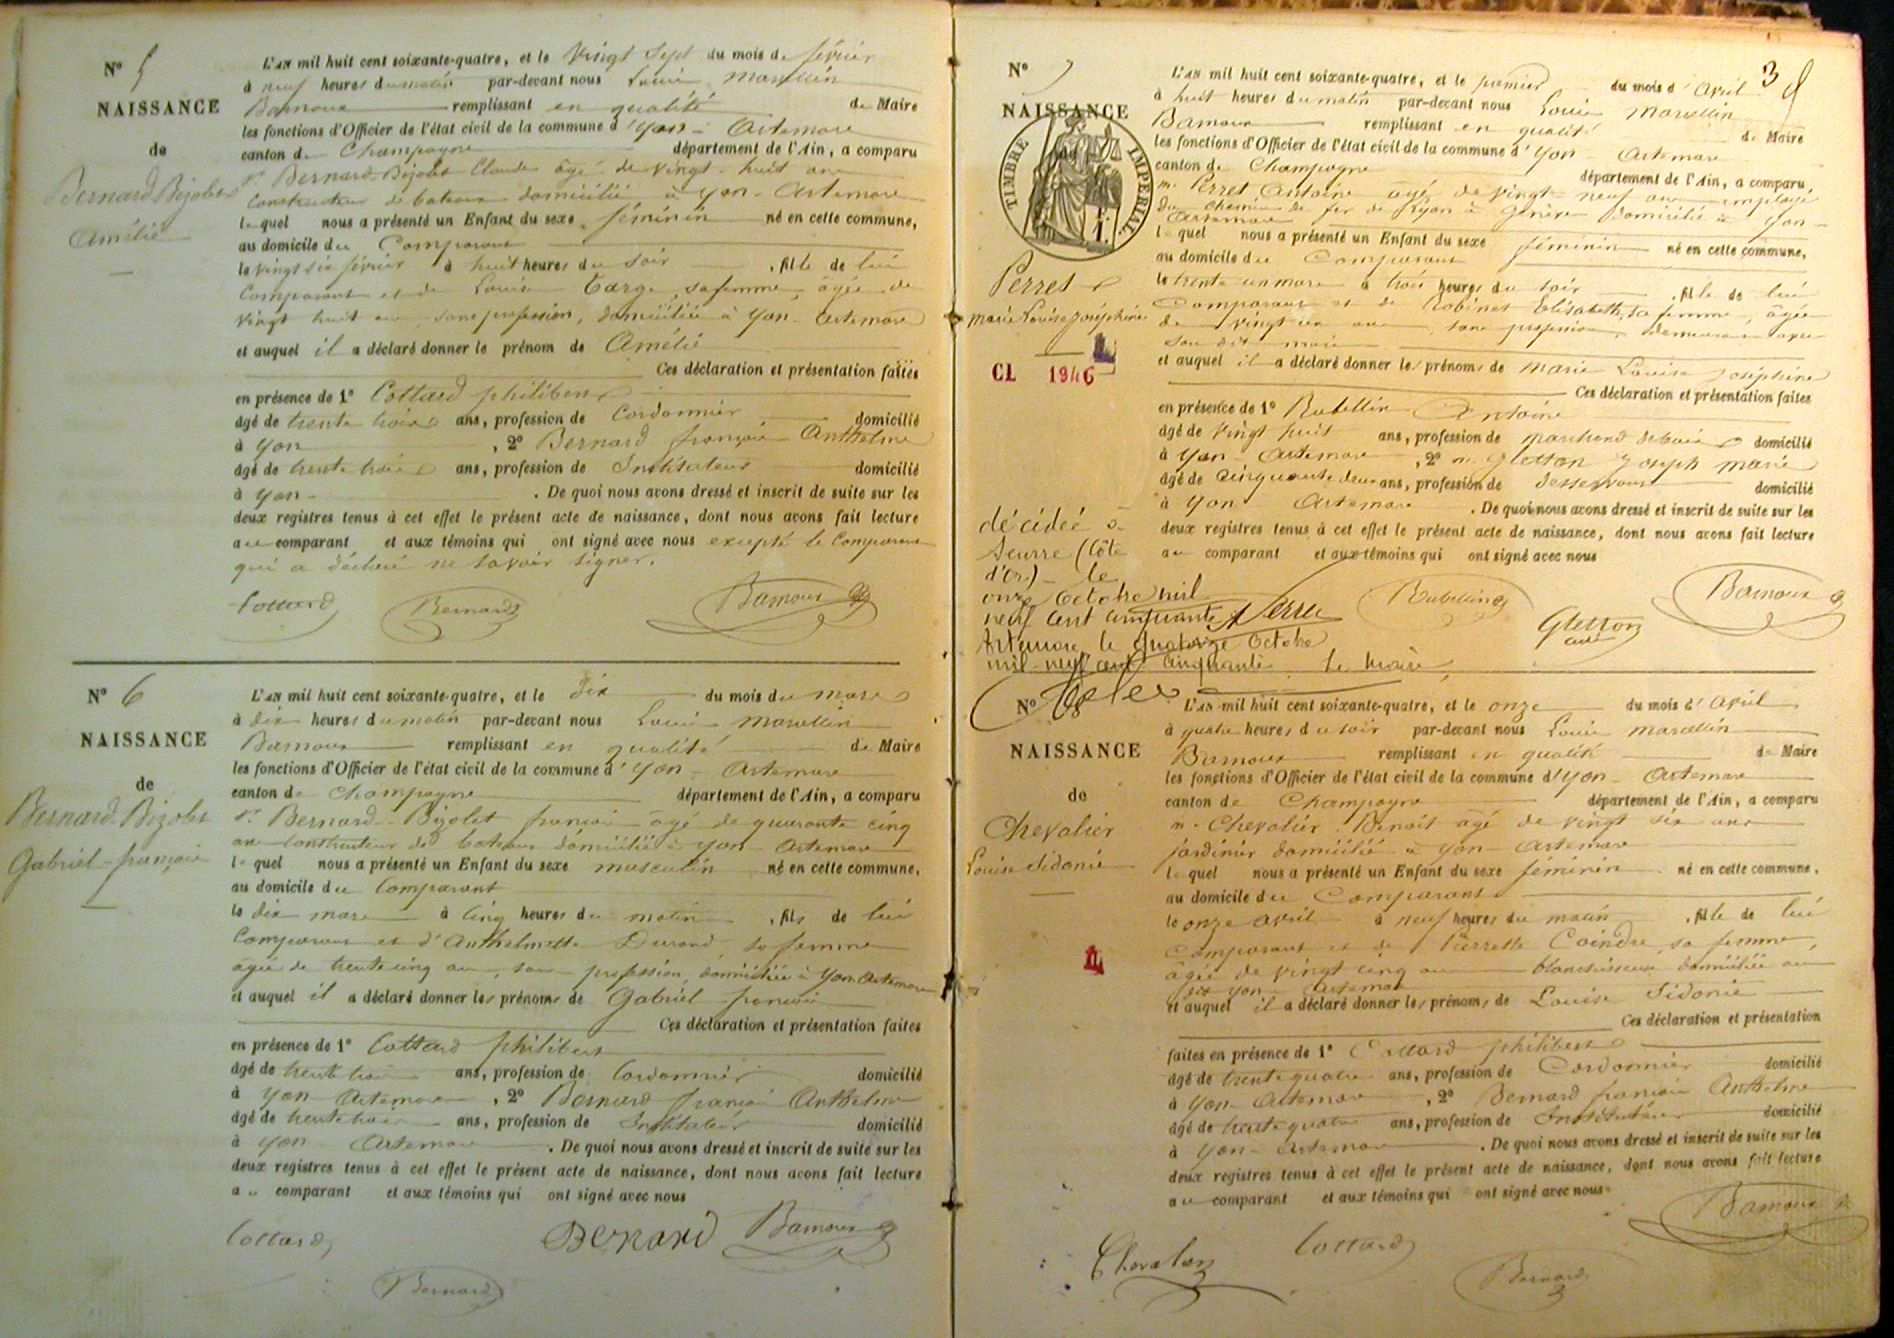 N° 5
NAISSANCE
de
Bernard Bizolet
Amélie
L'AN mil huit cent soixante-quatre, et le vingt sept du mois de février
à neuf heures du matin par-devant nous Louis Marcellin
Bamoux remplissant en qualité de Maire
les fonctions d'Officier de l'état civil de la commune d'Yon-Artemare
canton de Champagne département de l'Ain, a comparu
Sr Bernard-Bizolet Claude âgé de vingt-huit ans
constructeur de bateaux domicilié à Yon-Artemare
lequel nous a présenté un Enfant du sexe féminin né en cette commune,
au domicile du Comparant
le vingt six février à huit heures du soir, fille de lui
Comparant et de Louise Barge, sa femme, âgée de
vingt huit ans, sans profession, domiciliée à Yon-Artemare
et auquel il a déclaré donner le prénom de Amélie
Ces déclaration et présentation faites
en présence de 1° Cottard philibert
âgé de trente trois ans, profession de Cordonnier domicilié
à Yon, 2° Bernard françois Anthelme
âgé de trente trois ans, profession de Instituteur domicilié
à Yon-. De quoi nous avons dressé et inscrit de suite sur les
deux registres tenus à cet effet le présent acte de naissance, dont nous avons fait lecture
au comparant et aux témoins qui ont signé avec nous excepté le Comparant
qui a déclaré ne savoir signer.
Cottard Bernard Bamoux
N° 6
NAISSANCE
de
Bernard-Bizolet
Gabriel-françois
L'AN mil huit cent soixante-quatre, et le dix du mois de mars
à dix heures du matin par-devant nous Louis Marcellin
Bamoux remplissant en qualité de Maire
les fonctions d'Officier de l'état civil de la commune d'Yon-Artemare
canton de Champagne département de l'Ain, a comparu
Sr Bernard-Bizolet françois âgé de quarante cinq
ans constructeur de bateaux domicilié à Yon-Artemare
lequel nous a présenté un Enfant du sexe masculin né en cette commune,
au domicile du Comparant
le dix mars à cinq heures du matin, fils de lui
Comparant et d'Anthelmette Durand sa femme
âgée de trente cinq ans, sans profession, domiciliée à Yon Artemare
et auquel il a déclaré donner les prénoms de Gabriel françois
Ces déclaration et présentation faites
en présence de 1° Cottard philibert
âgé de trente trois ans, profession de Cordonnier domicilié
à Yon Artemare, 2° Bernard françois Anthelme
âgé de trente trois ans, profession de Instituteur domicilié
à Yon Artemare. De quoi nous avons dressé et inscrit de suite sur les
deux registres tenus à cet effet le présent acte de naissance, dont nous avons fait lecture
au comparant et aux témoins qui ont signé avec nous
Cottard BERNARD Bamoux
Bernard
3
N° 7
NAISSANCE
TIMBRE IMPERIAL
Perret
marie Louise Joséphine
CL 1946
décédée à
Seurre (Côte
d'Or) le
onze Octobre mil
neuf cent cinquante
Artemare le quatorze Octobre
mil neuf cent cinquante Le Maire,
L'AN mil huit cent soixante-quatre, et le premier du mois d'Avril
à huit heures du matin par-devant nous Louis Marcellin
Bamoux remplissant en qualité de Maire
les fonctions d'Officier de l'état civil de la commune d'Yon-Artemare
canton de Champagne département de l'Ain, a comparu
m. Perret Antoine âgé de vingt-neuf ans employé
du chemin de fer de Lyon à Genève domicilié à Yon-
Artemare
lequel nous a présenté un Enfant du sexe féminin né en cette commune,
au domicile du Comparant
le trente un mars à trois heures du soir, fille de lui
Comparant et de Robinet Elisabeth, sa femme, âgée
de vingt un ans, sans profession demeurant avec
son dit mari
et auquel il a déclaré donner les prénoms de Marie Louise Joséphine
Ces déclaration et présentation faites
en présence de 1° Rubellin Antoine
âgé de vingt huit ans, profession de marchand de bois domicilié
à Yon-Artemare, 2° m. Gletton Joseph Marie
âgé de cinquante deux ans, profession de desservant domicilié
à Yon Artemare. De quoi nous avons dressé et inscrit de suite sur les
deux registres tenus à cet effet le présent acte de naissance, dont nous avons fait lecture
au comparant et aux témoins qui ont signé avec nous
A Perret Rubellin Gletton curé Bamoux
N° 8
NAISSANCE
de
Chevalier
Louise Sidonie
L'AN mil huit cent soixante-quatre, et le onze du mois d'Avril
à quatre heures du soir par-devant nous Louis Marcellin
Bamoux remplissant en qualité de Maire
les fonctions d'Officier de l'état civil de la commune d'Yon-Artemare
canton de Champagne département de l'Ain, a comparu
m. Chevalier Benoit âgé de vingt six ans
jardinier domicilié à Yon-Artemare
lequel nous a présenté un Enfant du sexe féminin né en cette commune,
au domicile du Comparant
le onze avril à neuf heures du matin, fille de lui
Comparant et de Pierrette Coindre, sa femme,
âgée de vingt cinq ans blanchisseuse domiciliée au
dit Yon-Artemare
et auquel il a déclaré donner les prénoms de Louise Sidonie
Ces déclaration et présentation
faites en présence de 1° Cottard philibert
âgé de trente quatre ans, profession de Cordonnier domicilié
à Yon-Artemare, 2° Bernard françois Anthelme
âgé de trente quatre ans, profession de Instituteur domicilié
à Yon-Artemare. De quoi nous avons dressé et inscrit de suite sur les
deux registres tenus à cet effet le présent acte de naissance, dont nous avons fait lecture
au comparant et aux témoins qui ont signé avec nous
Chevalier Cottard Bernard Bamoux